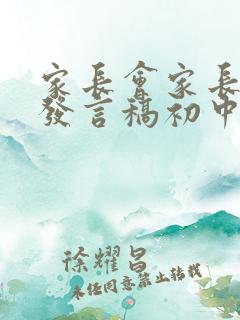 家长會家长
發言稿初中
徐耀昌
未经同意禁止转载